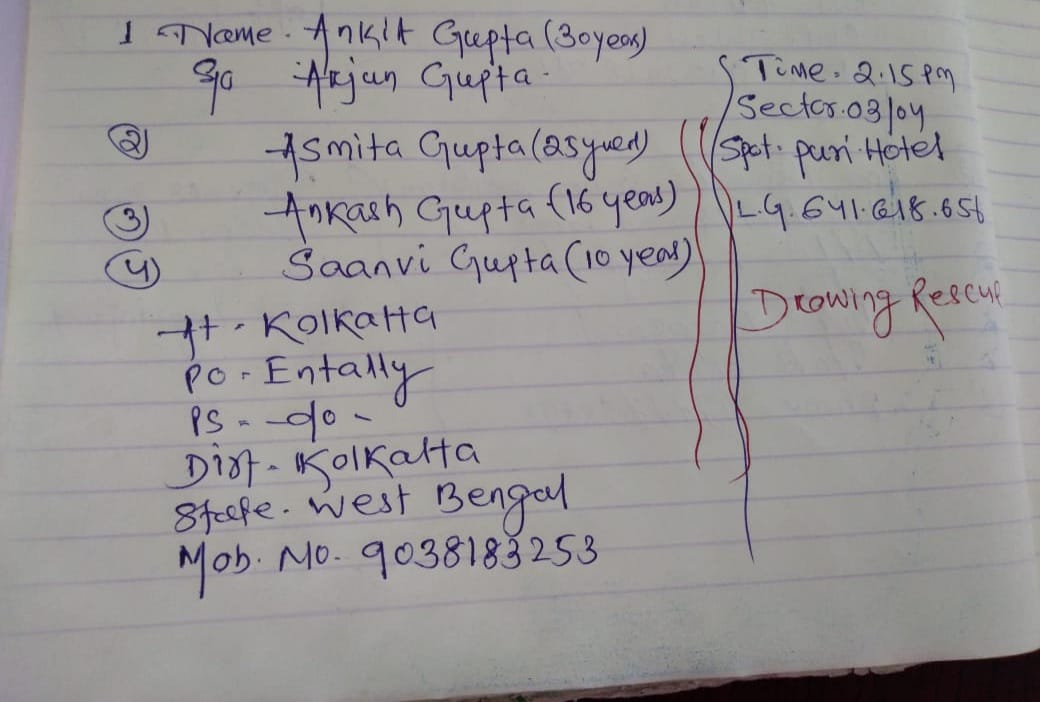 1 Name. Ankit Gupta (30 years)
S/o Arjun Gupta -
(2) Asmita Gupta (25 yuers)
(3) Ankash Gupta (16 years)
(4) Saanvi Gupta (10 years)
At - Kolkatta
PO - Entally
PS - -do -
Dist - Kolkatta
State. West Bengal
Mob. No. 9038183253
Time. 2.15 pm
Sector. 03/04
Spot. puri Hotel
L.G. 641.618.656
Drowing Rescue